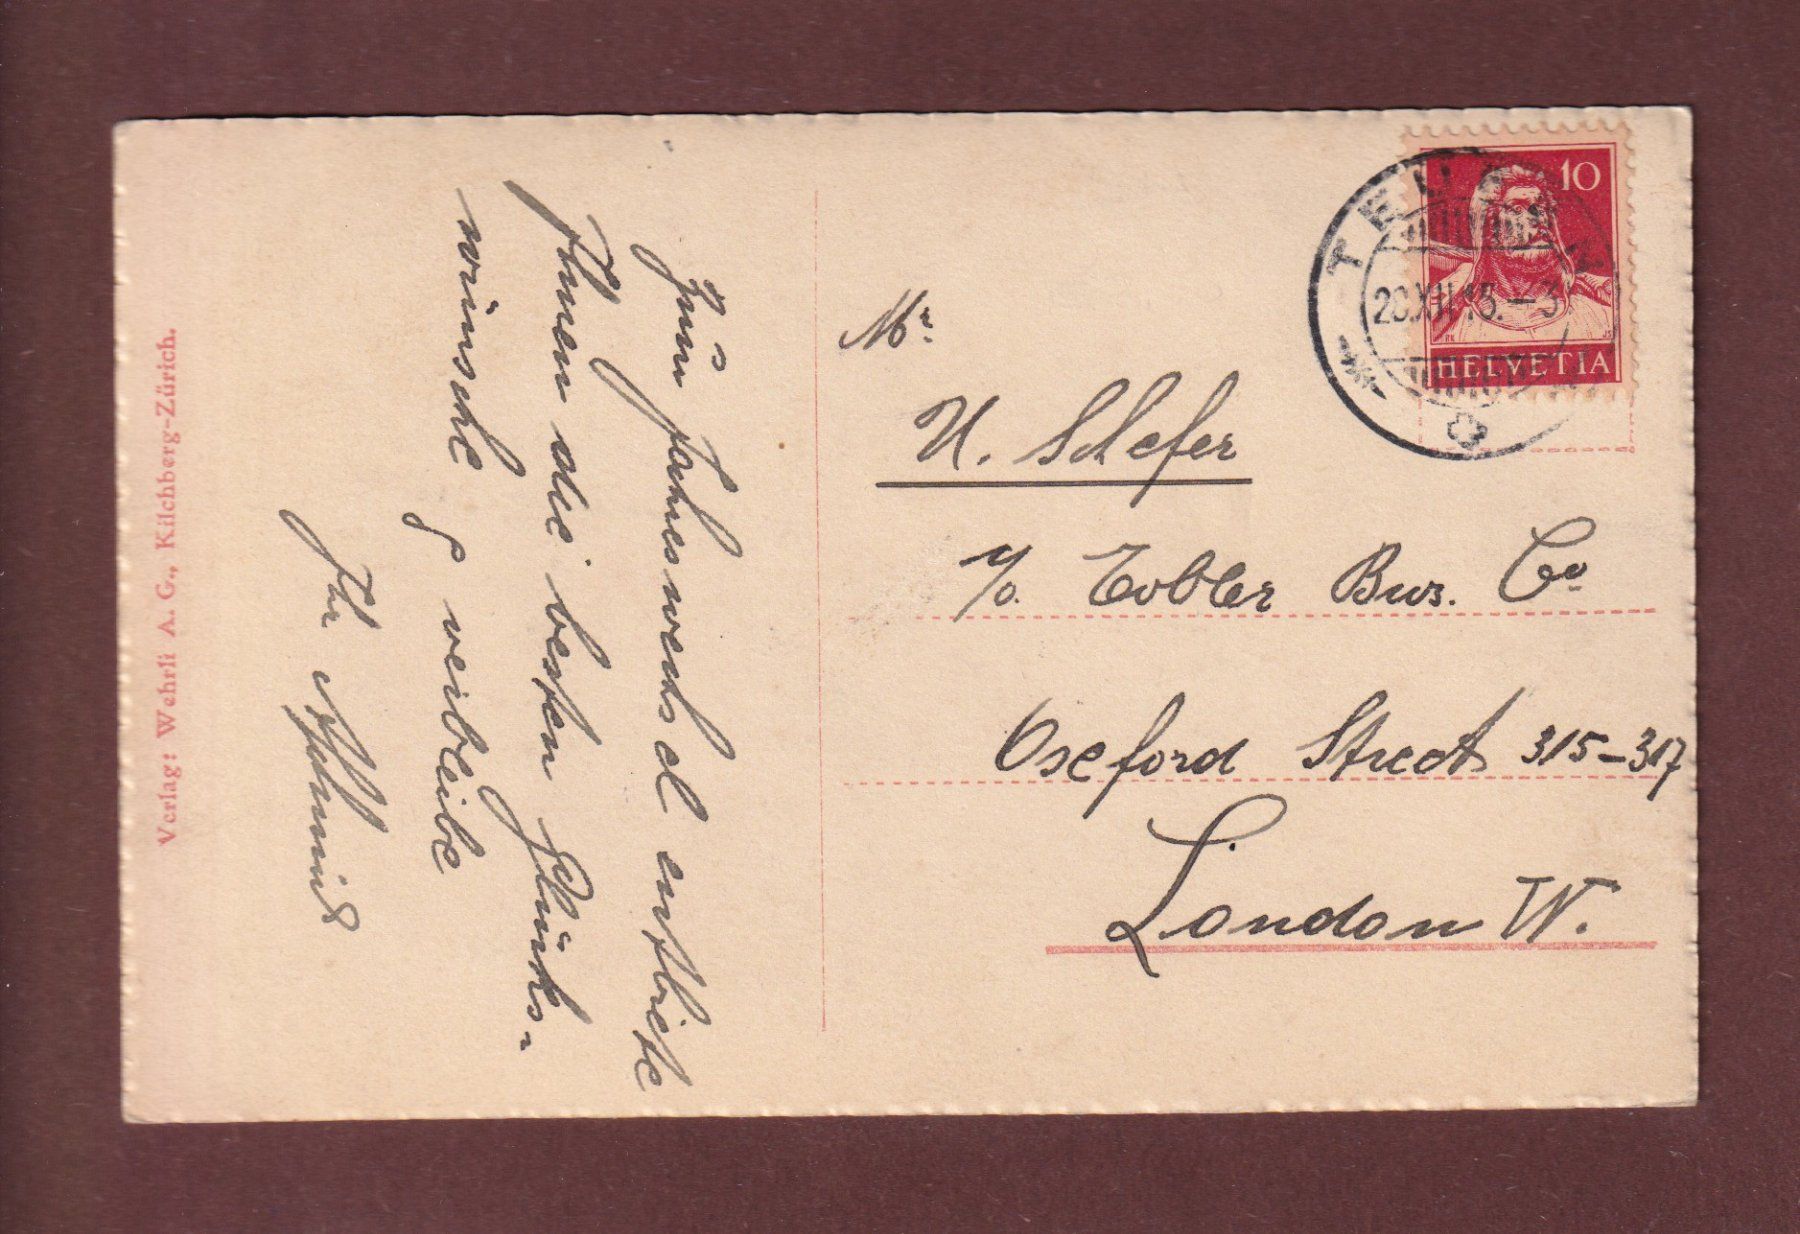 Zum Jahreswechsel entbiete
Ihnen die besten Glücks-
wünsche & verbleibe
Ihr
Verlag: Wehrli A. G., Kilchberg-Zürich.
10
HELVETIA
TEUFEN
XII.15.–3
Mr.
U. Schefer
c/o. Tobler Bros. Co
Oxford Street 315–317
London W.